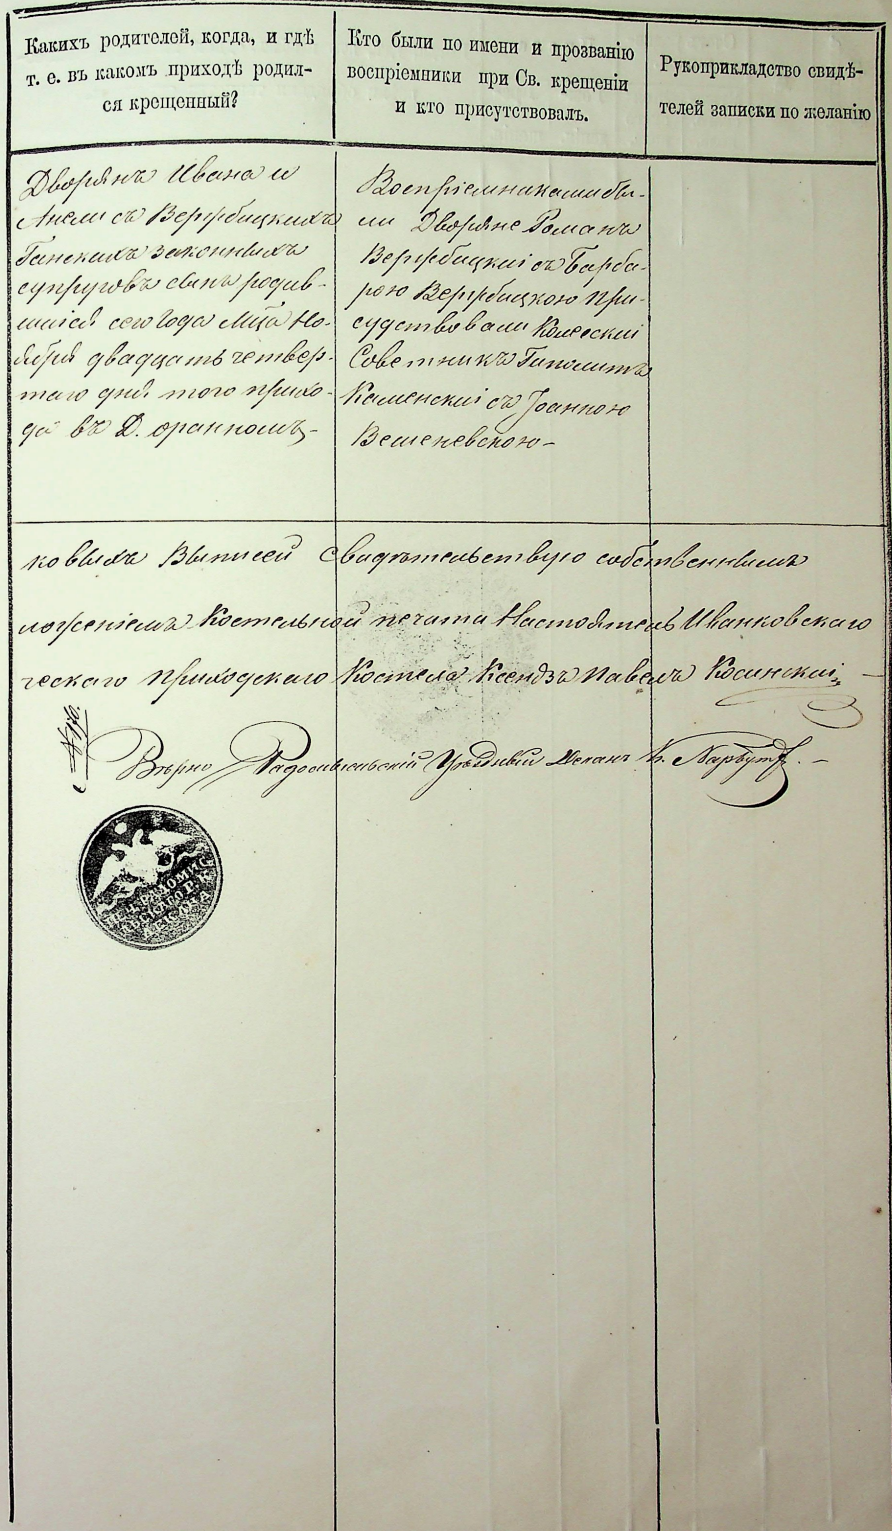 Какихъ родителей, когда, и гдѣ
т. е. въ какомъ приходѣ родил-
ся крещенный?
Кто были по имени и прозванію
воспріемники при Св. крещеніи
и кто присутствовалъ.
Рукоприкладство свидѣ-
телей записки по желанію
Дворянъ Ивана и
Анели съ Вержбицкихъ
Ганскихъ законныхъ
супруговъ сынъ родив-
шійся сего года Мца Но-
ября двадцать четвер-
таго дня того прихо-
да въ Д. оранномъ-
Воспріемниками бы-
ли Дворяне Романъ
Вержбицкій съ Барба-
рою Вержбицкою при-
судствовали Колеский
Советникъ Гиполитъ
Каменскій съ Іоанною
Вешеневскою-
ковыхъ Выписей свидѣтельствую собственнымъ
ложеніемъ Костельной печати Настоятель Иванковскаго
ческаго Приходскаго Костела Ксендзъ Павелъ Косинскій
Вѣрно Радомысльскій Уѣздный Деканъ К. Нарбутъ. -